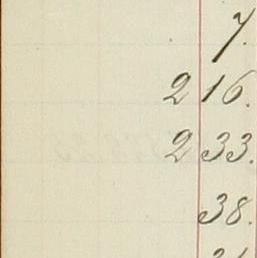 7.
216.
233.
38.